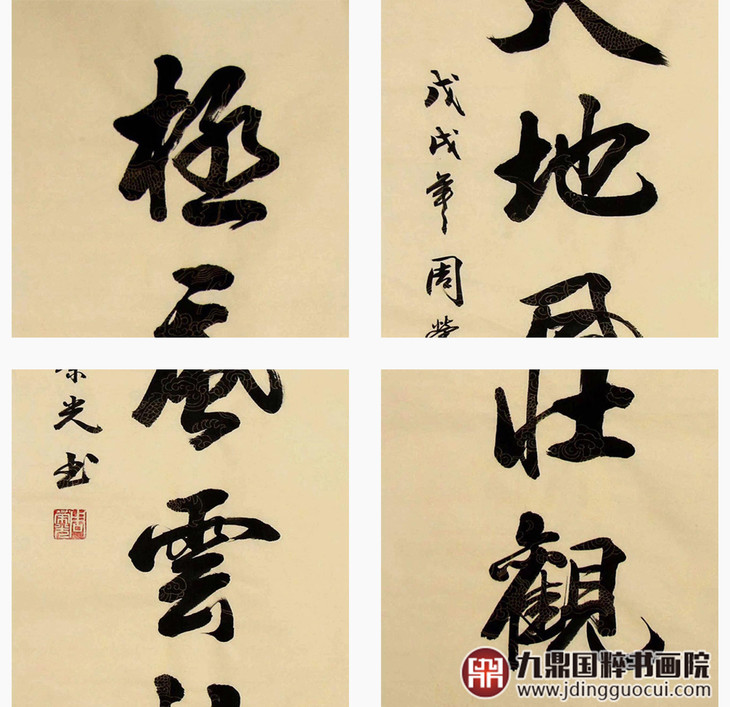 極天
天地風
戊戌年周榮
風雲
光书
壯觀
九鼎国粹书画院
www.jdingguocui.com